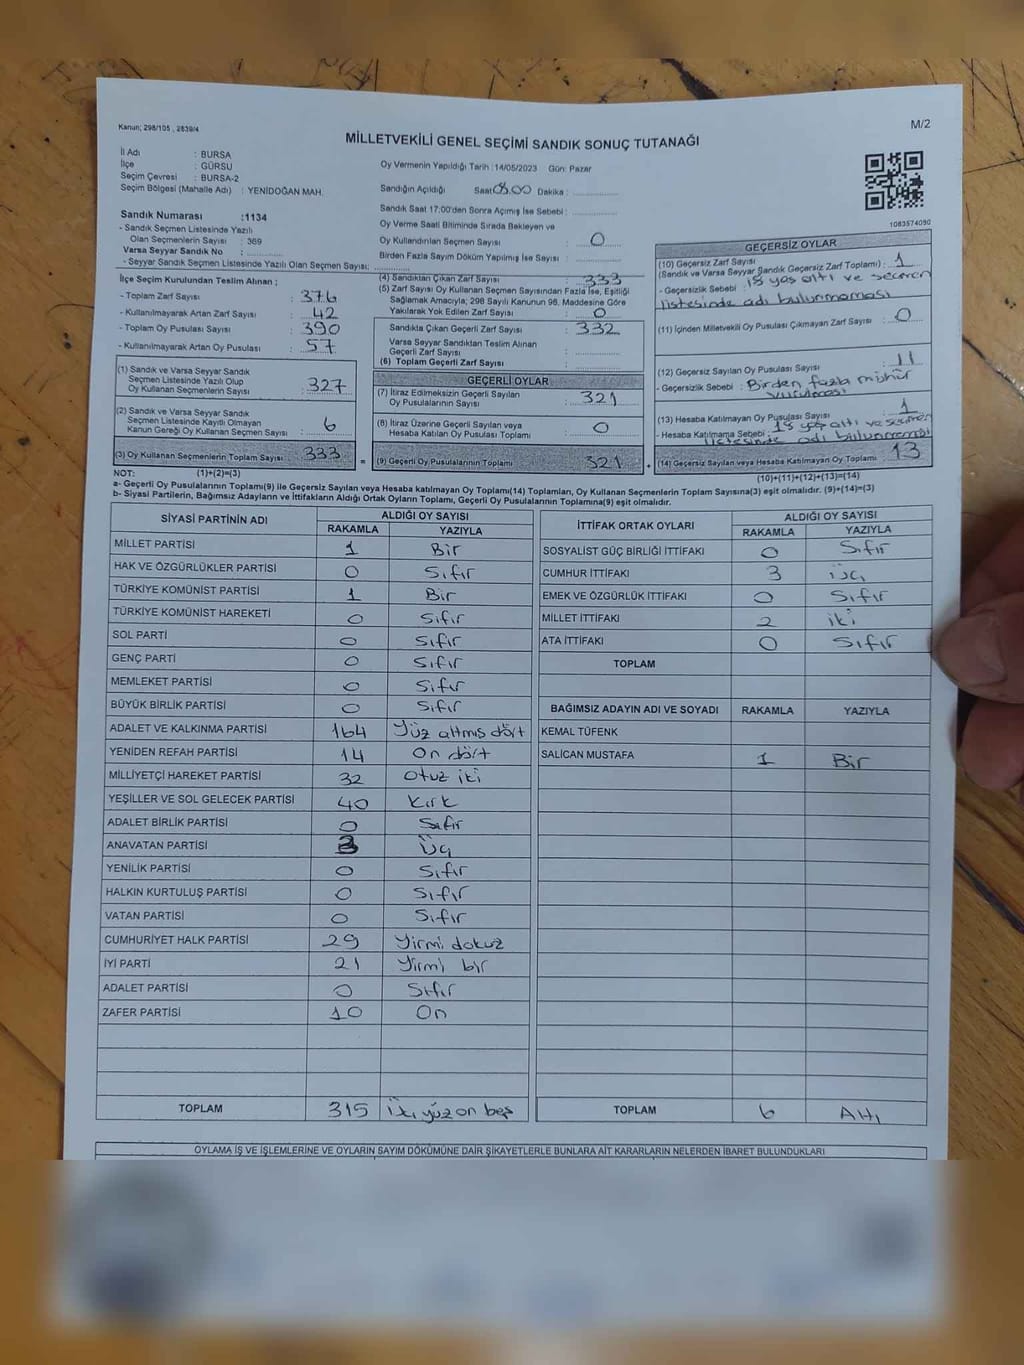 Kanun; 298/105 , 2839/4
M/2
MİLLETVEKİLİ GENEL SEÇİMİ SANDIK SONUÇ TUTANAĞI
İl Adı : BURSA
İlçe : GÜRSU
Seçim Çevresi : BURSA-2
Seçim Bölgesi (Mahalle Adı) : YENİDOĞAN MAH.
Sandık Numarası :1134
- Sandık Seçmen Listesinde Yazılı
Olan Seçmenlerin Sayısı : 369
Varsa Seyyar Sandık No :
- Seyyar Sandık Seçmen Listesinde Yazılı Olan Seçmen Sayısı;
Oy Vermenin Yapıldığı Tarih :14/05/2023 Gün: Pazar
Sandığın Açıldığı Saat 08.00 Dakika :
Sandık Saat 17:00'den Sonra Açımış İse Sebebi :
Oy Verme Saati Bitiminde Sırada Bekleyen ve
Oy Kullandırılan Seçmen Sayısı : 0
Birden Fazla Sayım Döküm Yapılmış İse Sayısı :
1083574090
İlçe Seçim Kurulundan Teslim Alınan ;
- Toplam Zarf Sayısı : 376
- Kullanılmayarak Artan Zarf Sayısı : 42
- Toplam Oy Pusulası Sayısı : 390
- Kullanılmayarak Artan Oy Pusulası : 57
(1) Sandık ve Varsa Seyyar Sandık
Seçmen Listesinde Yazılı Olup
Oy Kullanan Seçmenlerin Sayısı : 327
(2) Sandık ve Varsa Seyyar Sandık
Seçmen Listesinde Kayıtlı Olmayan
Kanun Gereği Oy Kullanan Seçmen Sayısı : 6
(3) Oy Kullanan Seçmenlerin Toplam Sayısı : 333
(4) Sandıktan Çıkan Zarf Sayısı : 333
(5) Zarf Sayısı Oy Kullanan Seçmen Sayısından Fazla İse, Eşitliği
Sağlamak Amacıyla; 298 Sayılı Kanunun 98. Maddesine Göre
Yakılarak Yok Edilen Zarf Sayısı : 0
Sandıkta Çıkan Geçerli Zarf Sayısı : 332
Varsa Seyyar Sandıktan Teslim Alınan
Geçerli Zarf Sayısı :
(6) Toplam Geçerli Zarf Sayısı :
GEÇERLİ OYLAR
(7) İtiraz Edilmeksizin Geçerli Sayılan
Oy Pusulalarının Sayısı : 321
(8) İtiraz Üzerine Geçerli Sayılan veya
Hesaba Katılan Oy Pusulası Toplamı : 0
= (9) Geçerli Oy Pusulalarının Toplamı 321 +
GEÇERSİZ OYLAR
(10) Geçersiz Zarf Sayısı
(Sandık ve Varsa Seyyar Sandık Geçersiz Zarf Toplamı) : 1
- Geçersizlik Sebebi : 18 yaş altı ve seçmen
listesinde adı bulunmaması
(11) İçinden Milletvekili Oy Pusulası Çıkmayan Zarf Sayısı : 0
(12) Geçersiz Sayılan Oy Pusulası Sayısı : 11
- Geçersizlik Sebebi : Birden fazla mühür
vurulması
(13) Hesaba Katılmayan Oy Pusulası Sayısı : 1
- Hesaba Katılmama Sebebi : 18 yaş altı ve seçmen
listesinde adı bulunmaması
(14) Geçersiz Sayılan veya Hesaba Katılmayan Oy Toplamı 13
NOT: (1)+(2)=(3) (10)+(11)+(12)+(13)=(14)
a- Geçerli Oy Pusulalarının Toplamı(9) ile Geçersiz Sayılan veya Hesaba katılmayan Oy Toplamı(14) Toplamları, Oy Kullanan Seçmenlerin Toplam Sayısına(3) eşit olmalıdır. (9)+(14)=(3)
b- Siyasi Partilerin, Bağımsız Adayların ve İttifakların Aldığı Ortak Oyların Toplamı, Geçerli Oy Pusulalarının Toplamına(9) eşit olmalıdır.
SİYASİ PARTİNİN ADI ALDIĞI OY SAYISI
RAKAMLA YAZIYLA
MİLLET PARTİSİ 1 Bir
HAK VE ÖZGÜRLÜKLER PARTİSİ 0 Sıfır
TÜRKİYE KOMÜNİST PARTİSİ 1 Bir
TÜRKİYE KOMÜNİST HAREKETİ 0 Sıfır
SOL PARTİ 0 Sıfır
GENÇ PARTİ 0 Sıfır
MEMLEKET PARTİSİ 0 Sıfır
BÜYÜK BİRLİK PARTİSİ 0 Sıfır
ADALET VE KALKINMA PARTİSİ 164 Yüz altmış dört
YENİDEN REFAH PARTİSİ 14 On dört
MİLLİYETÇİ HAREKET PARTİSİ 32 Otuz iki
YEŞİLLER VE SOL GELECEK PARTİSİ 40 Kırk
ADALET BİRLİK PARTİSİ 0 Sıfır
ANAVATAN PARTİSİ 3 Üç
YENİLİK PARTİSİ 0 Sıfır
HALKIN KURTULUŞ PARTİSİ 0 Sıfır
VATAN PARTİSİ 0 Sıfır
CUMHURİYET HALK PARTİSİ 29 Yirmi dokuz
İYİ PARTİ 21 Yirmi bir
ADALET PARTİSİ 0 Sıfır
ZAFER PARTİSİ 10 On
TOPLAM 315 İki yüz on beş
İTTİFAK ORTAK OYLARI ALDIĞI OY SAYISI
RAKAMLA YAZIYLA
SOSYALİST GÜÇ BİRLİĞİ İTTİFAKI 0 Sıfır
CUMHUR İTTİFAKI 3 üç
EMEK VE ÖZGÜRLÜK İTTİFAKI 0 Sıfır
MİLLET İTTİFAKI 2 iki
ATA İTTİFAKI 0 Sıfır
TOPLAM
BAĞIMSIZ ADAYIN ADI VE SOYADI RAKAMLA YAZIYLA
KEMAL TÜFENK
SALİCAN MUSTAFA 1 Bir
TOPLAM 6 Altı
OYLAMA İŞ VE İŞLEMLERİNE VE OYLARIN SAYIM DÖKÜMÜNE DAİR ŞİKAYETLERLE BUNLARA AİT KARARLARIN NELERDEN İBARET BULUNDUKLARI